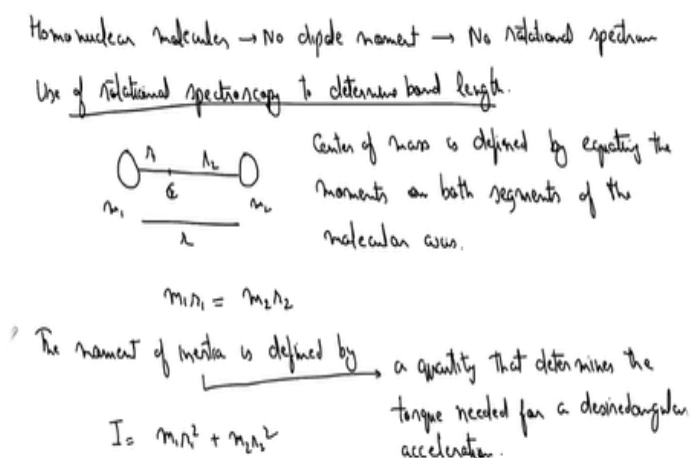 Homonuclear molecules → No dipole moment → No rotational spectrum
Use of rotational spectroscopy to determine bond length.
r₁ r₂
C
m₁ m₂
r
Center of mass is defined by equating the
moments on both segments of the
molecular axis.
m₁r₁ = m₂r₂
The moment of inertia is defined by → a quantity that determines the
torque needed for a desired angular
acceleration.
I = m₁r₁² + m₂r₂²